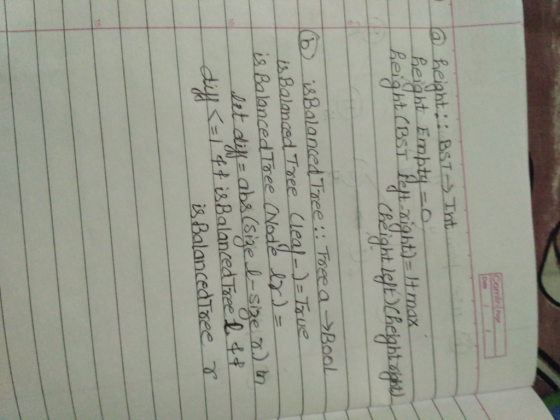 (a) height :: BST => Int
height Empty = 0
height (BST left right) = 1 + max
(height left) (height right)
(b) isBalancedTree :: Tree a -> Bool
isBalanced Tree (leaf _) = True
isBalancedTree (Node l r) =
let diff = abs (size l - size r) in
diff <= 1 && isBalancedTree l &&
isBalancedTree r